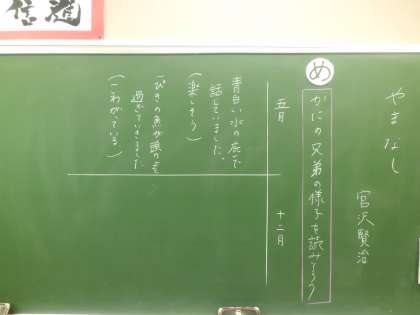 やまなし
宮沢賢治
め
かにの兄弟の様子を読みとろう
五月
十二月
青白い水の底で
話していました。
(楽しそう)
一ぴきの魚が頭の上を
過ぎていきました
(こわがっている)